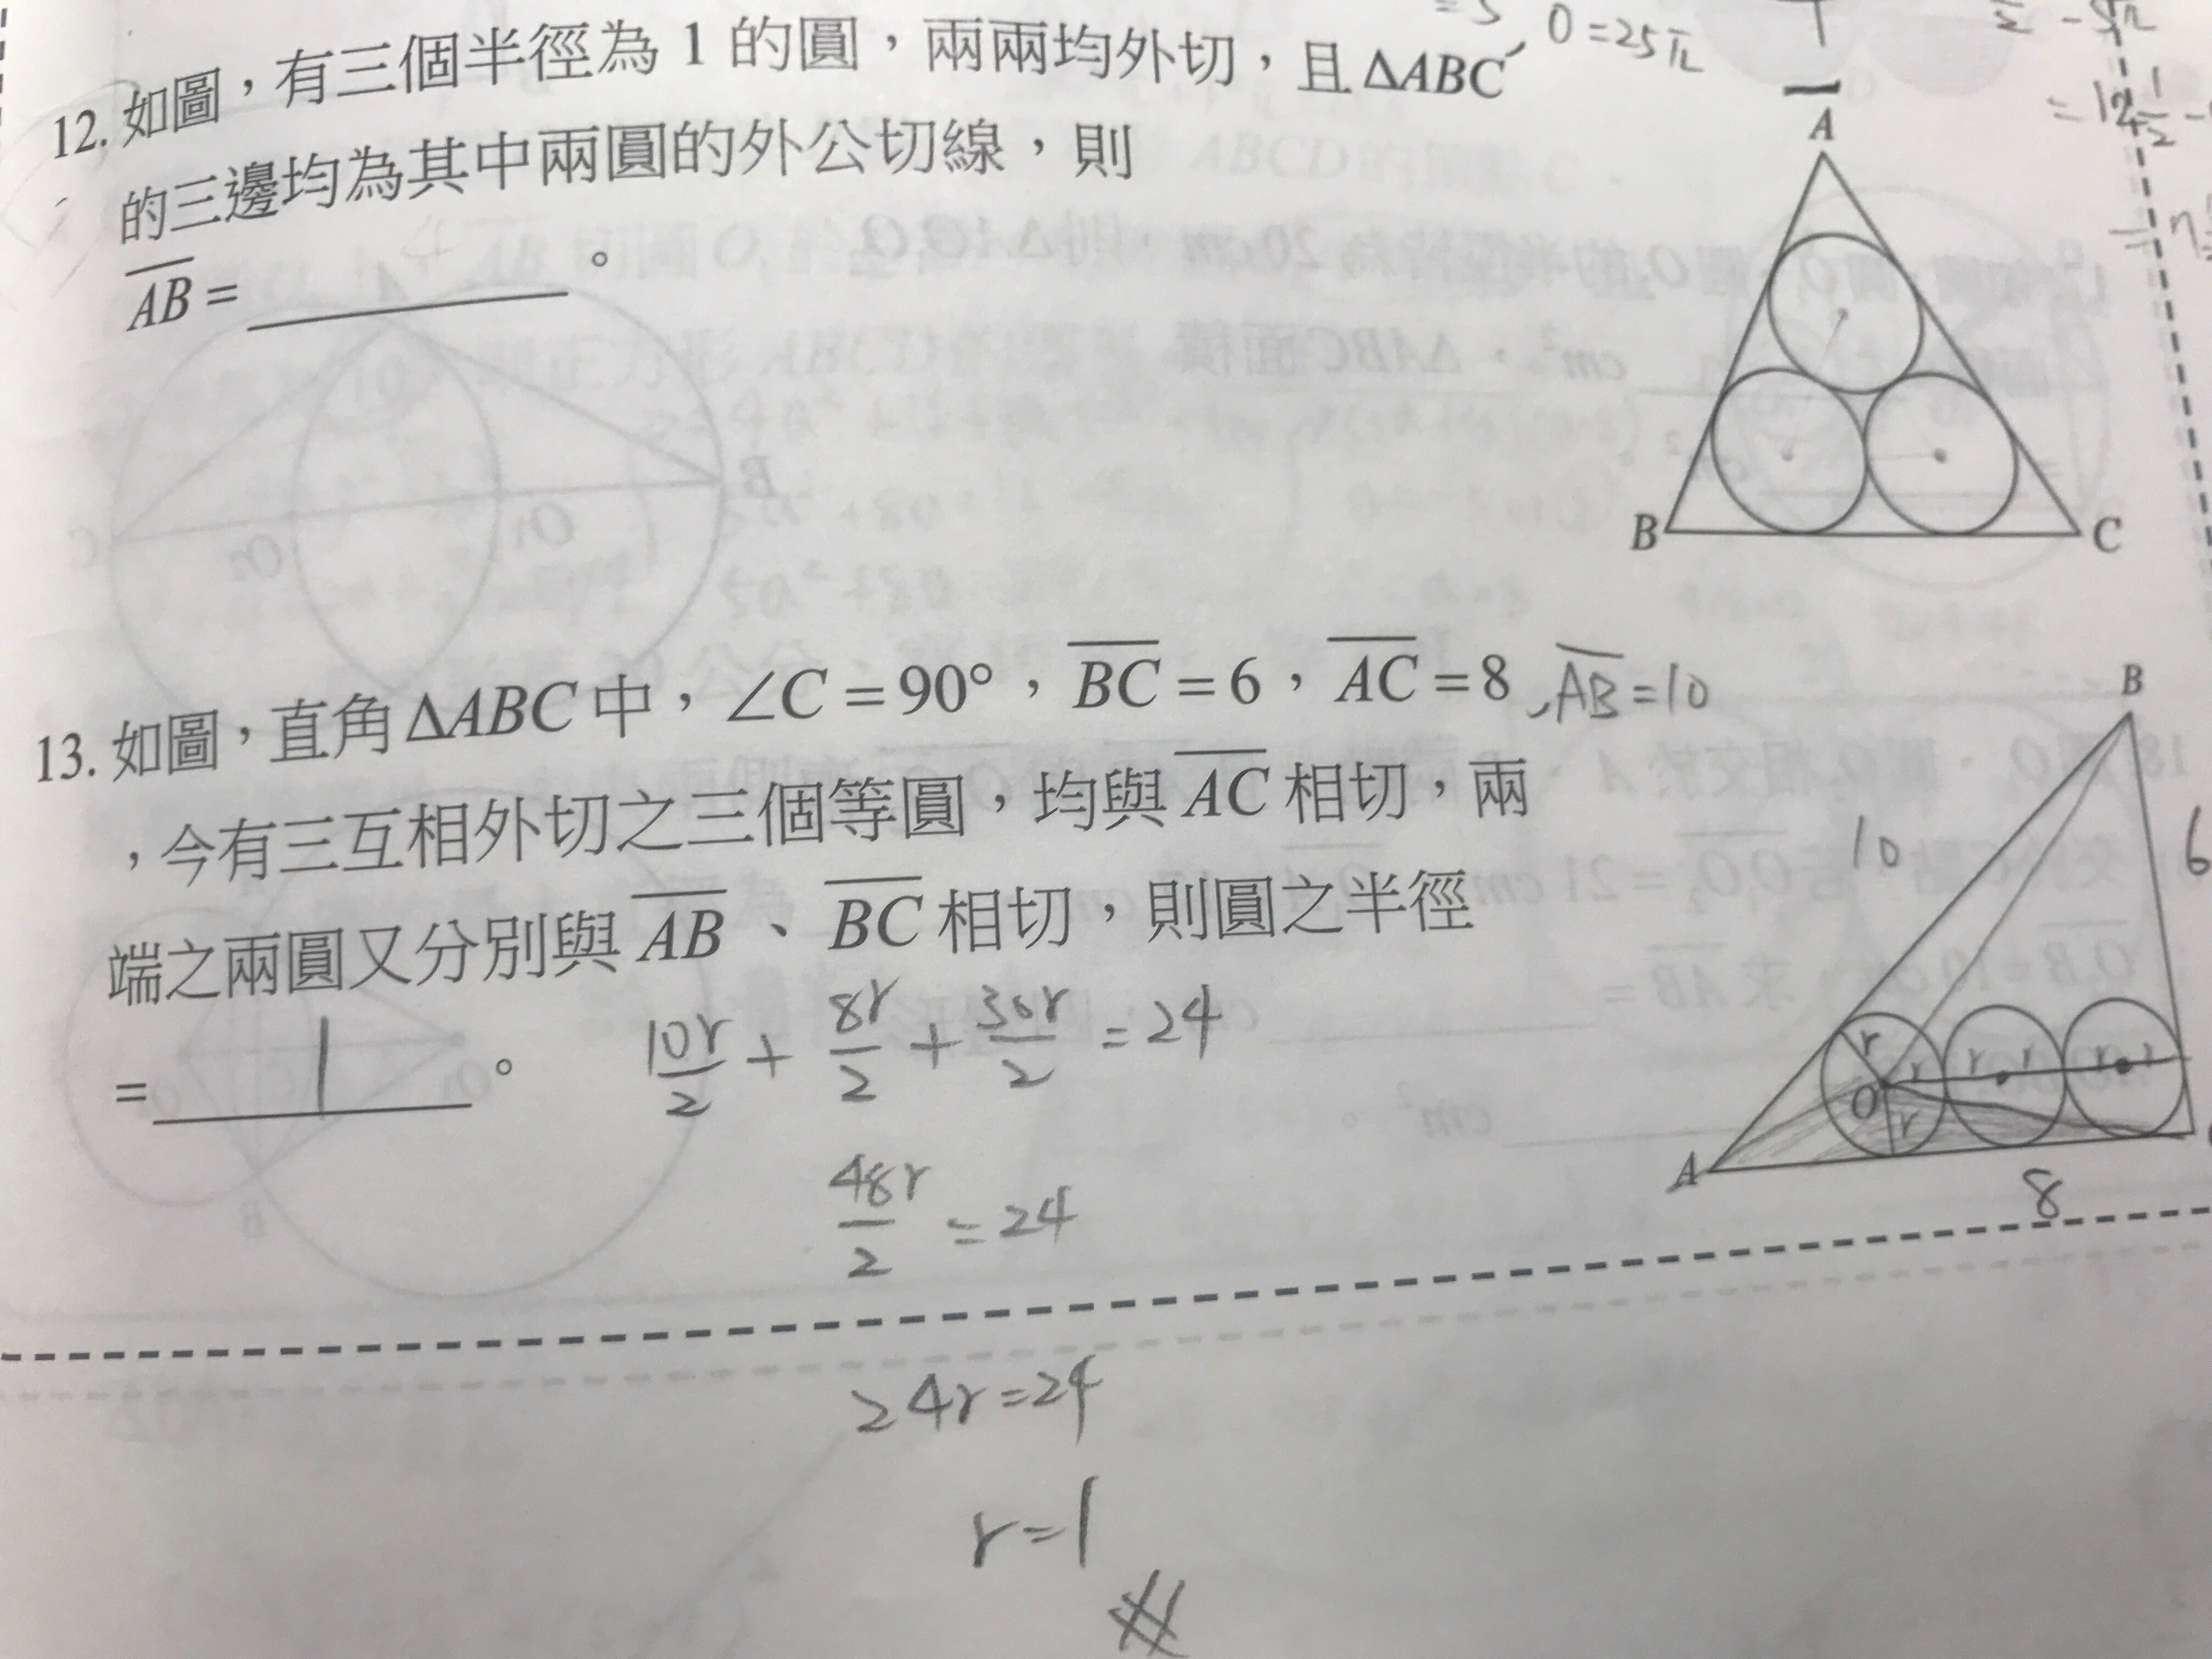 =5, O=25π
12. 如圖，有三個半徑為 1 的圓，兩兩均外切，且 ΔABC
的三邊均為其中兩圓的外公切線，則
AB = ________ 。
A
B
C
13. 如圖，直角 ΔABC 中，∠C = 90°，BC = 6，AC = 8, AB = 10
，今有三互相外切之三個等圓，均與 AC 相切，兩
端之兩圓又分別與 AB、BC 相切，則圓之半徑
= 1 。
10r/2 + 8r/2 + 30r/2 = 24
48r/2 = 24
24r = 24
r = 1
B
10
6
r r r r r r
O
r
A
8